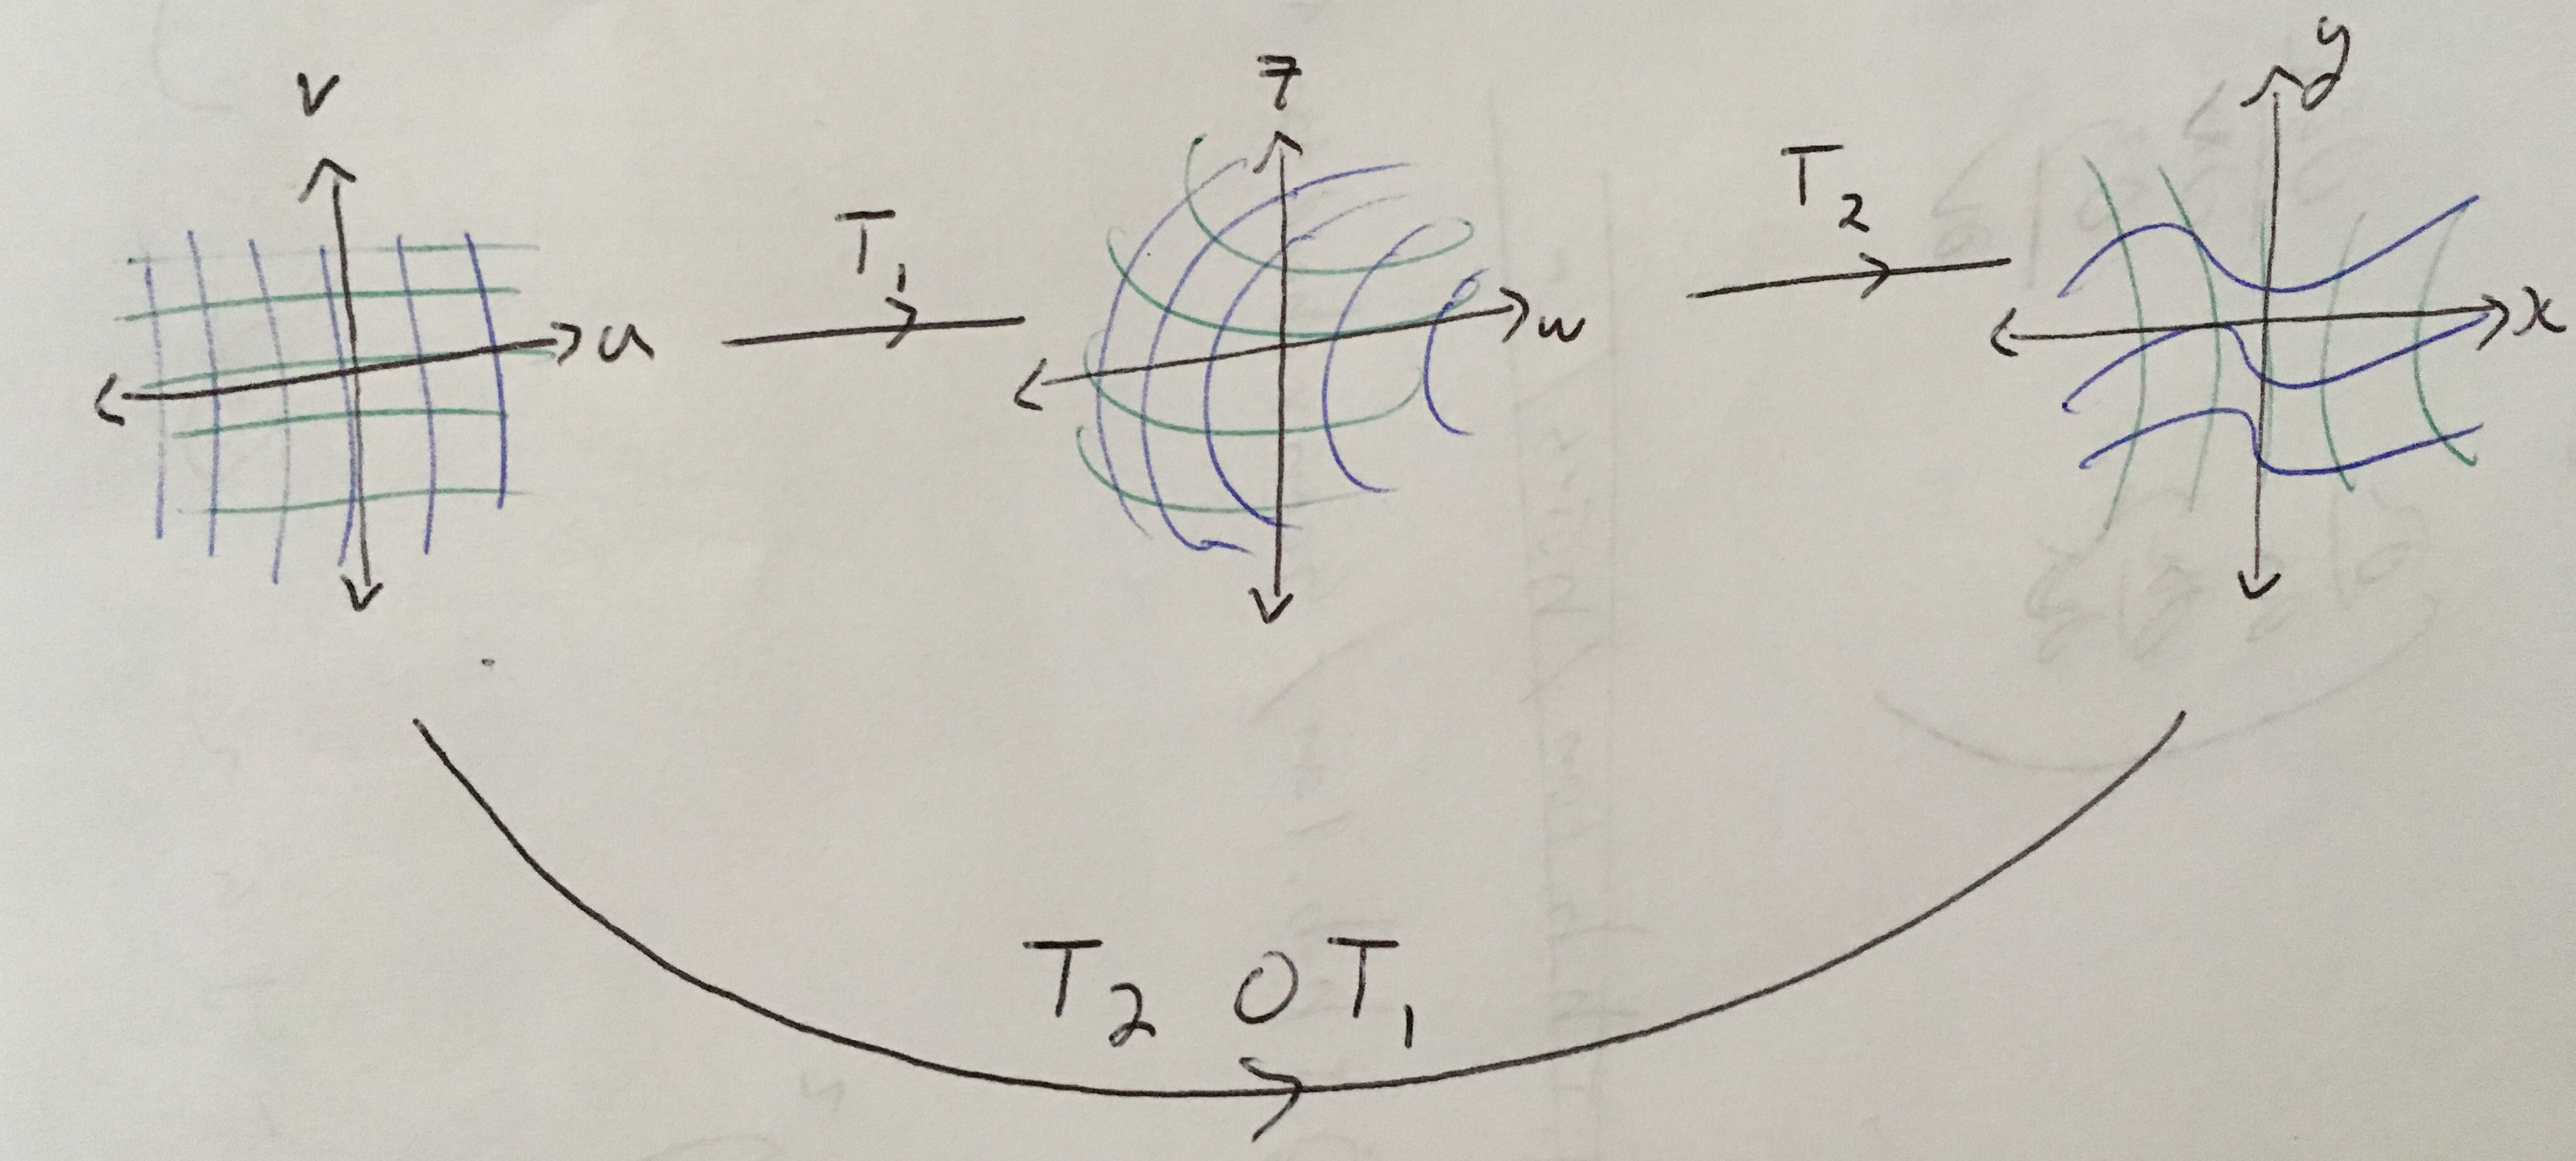 v
u
T₁
z
w
T₂
y
x
T₂ ∘ T₁